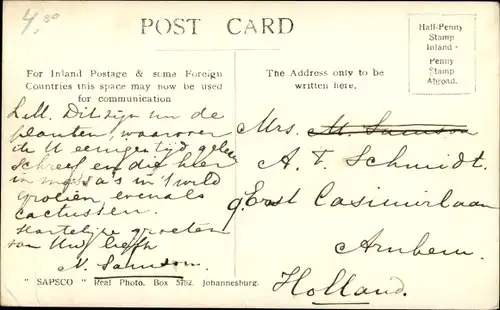 4,50
POST CARD
Half-Penny
Stamp
Inland -
Penny
Stamp
Abroad.
For Inland Postage & some Foreign
Countries this space may now be used
for communication
The Address only to be
written here.
L.M. Dit zijn nu de
planten, waarover
de U eenigen tijd geleden
schreef en die hier
in massa's in 't wild
groeien, evenals
cactussen.
Hartelijke groeten
van Uw liefh
N. Samson.
Mrs. M. Samson
A. F. Schmidt.
Eerst Casimirlaan
Arnhem.
Holland.
" SAPSCO " Real Photo. Box 5792. Johannesburg.